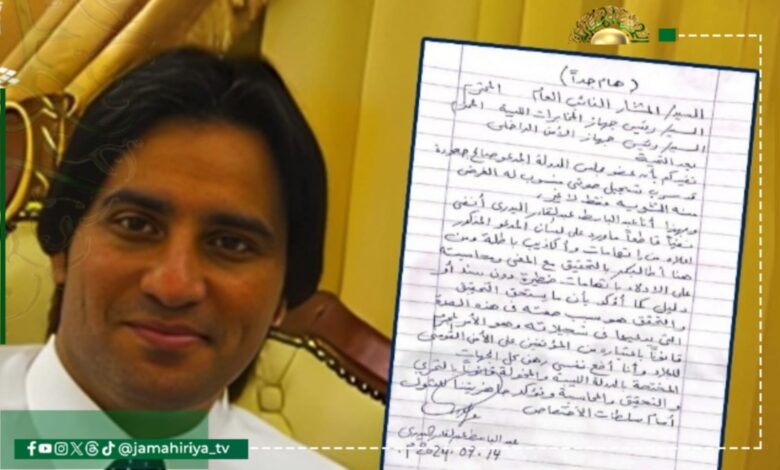 (هام جداً)
السيد/ المستشار النائب العام المحترم
السيد/ رئيس جهاز المخابرات الليبية المحترم
السيد/ رئيس جهاز الأمن الداخلي
بعد التحية
نفيدكم بأنه عضو مجلس الدولة المدعو صالح جعودة
قد سرب تسجيل صوتي منسوب له الغرض
منه التشويه فقط لا غير
وبهذا أنا عبد الباسط عبدالقادر البدري أنفي
نفياً قاطعاً ما ورد على لسان المدعو المذكور
اعلاه من إتهامات وأكاذيب باطلة ومن
هنا أطالبكم بالتحقيق مع المعني ومحاسبته
على الادلاء بإتهامات خطيرة دون سند أو
دليل كما أؤكد بأن ما يستحق التحقيق
والتحقق هو سبب صمته في هذه المدة
التي يدعيها في تسجيلاته وهو الأمر المجرم
قانوناً بإعتباره من المؤتمنين على الأمن القومي
للبلاد وأنا أضع نفسي رهن كل الجهات
المختصة بالدولة الليبية والمخولة قانونياً بالتحري
والتحقيق والمحاسبة ونؤكد جاهزيتنا للمثول
أمام سلطات الاختصاص
عبد الباسط عبدالقادر البدري
2024.03.14م
@jamahiriya_tv